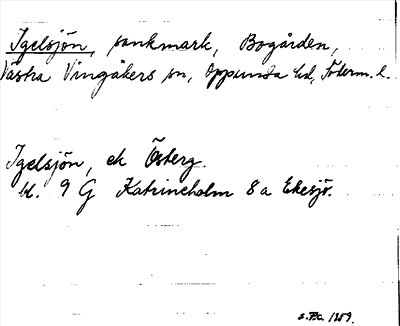 Igelsjön, sankmark, Bogården,
Västra Vingåkers sn, Oppunda hd, Söderm. l.
Igelsjön, ek Österg.
bl. 9 G Katrineholm 8 a Ekesjö.
s. 1259.